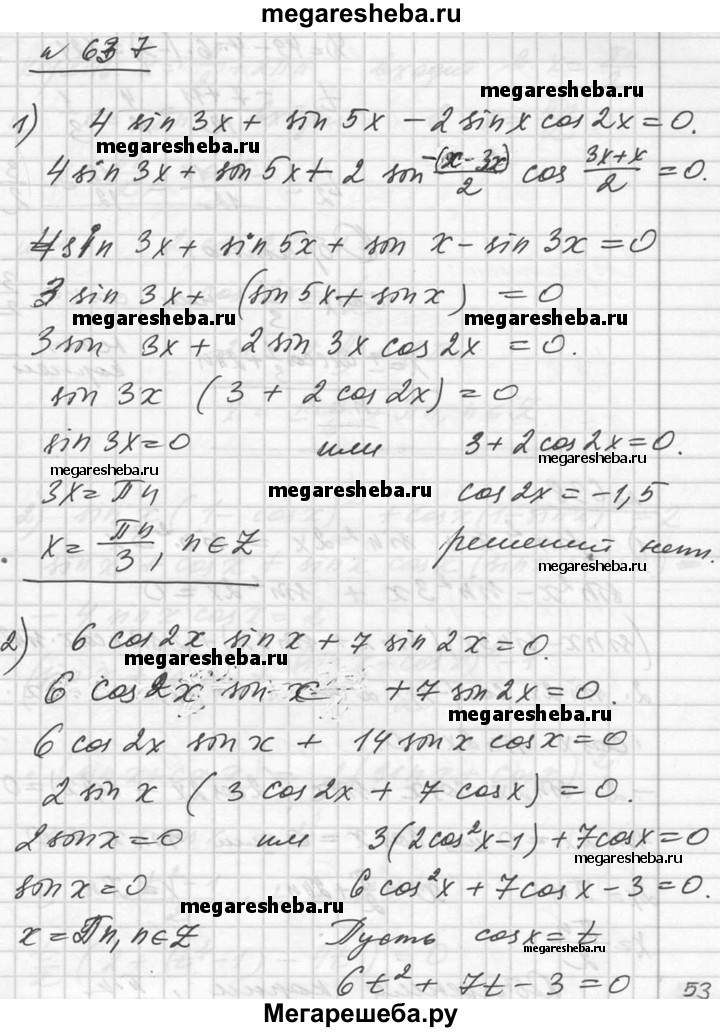 megaresheba.ru
№ 637
megaresheba.ru
1) 4 sin 3x + sin 5x - 2 sinx cos 2x = 0.
megaresheba.ru
4 sin 3x + sin 5x + 2 sin -(x-3x)/2 cos (3x+x)/2 = 0.
4 sin 3x + sin 5x + sin x - sin 3x = 0
3 sin 3x + (sin 5x + sin x) = 0
megaresheba.ru megaresheba.ru
3 sin 3x + 2 sin 3x cos 2x = 0.
sin 3x (3 + 2 cos 2x) = 0
sin 3x = 0 или 3 + 2 cos 2x = 0.
megaresheba.ru megaresheba.ru
3x = πn cos 2x = -1,5
x = πn/3, n ∈ Z решений нет.
megaresheba.ru
2) 6 cos 2x sin x + 7 sin 2x = 0.
megaresheba.ru
6 cos 2x sin x + 7 sin 2x = 0.
megaresheba.ru
6 cos 2x sin x + 14 sin x cos x = 0
2 sin x (3 cos 2x + 7 cos x) = 0.
megaresheba.ru
2 sin x = 0 или 3(2cos²x-1) + 7cos x = 0
megaresheba.ru
sin x = 0 6 cos²x + 7 cos x - 3 = 0.
megaresheba.ru
x = πn, n ∈ Z Пусть cos x = t
megaresheba.ru
6t² + 7t - 3 = 0
53
Мегарешеба.ру